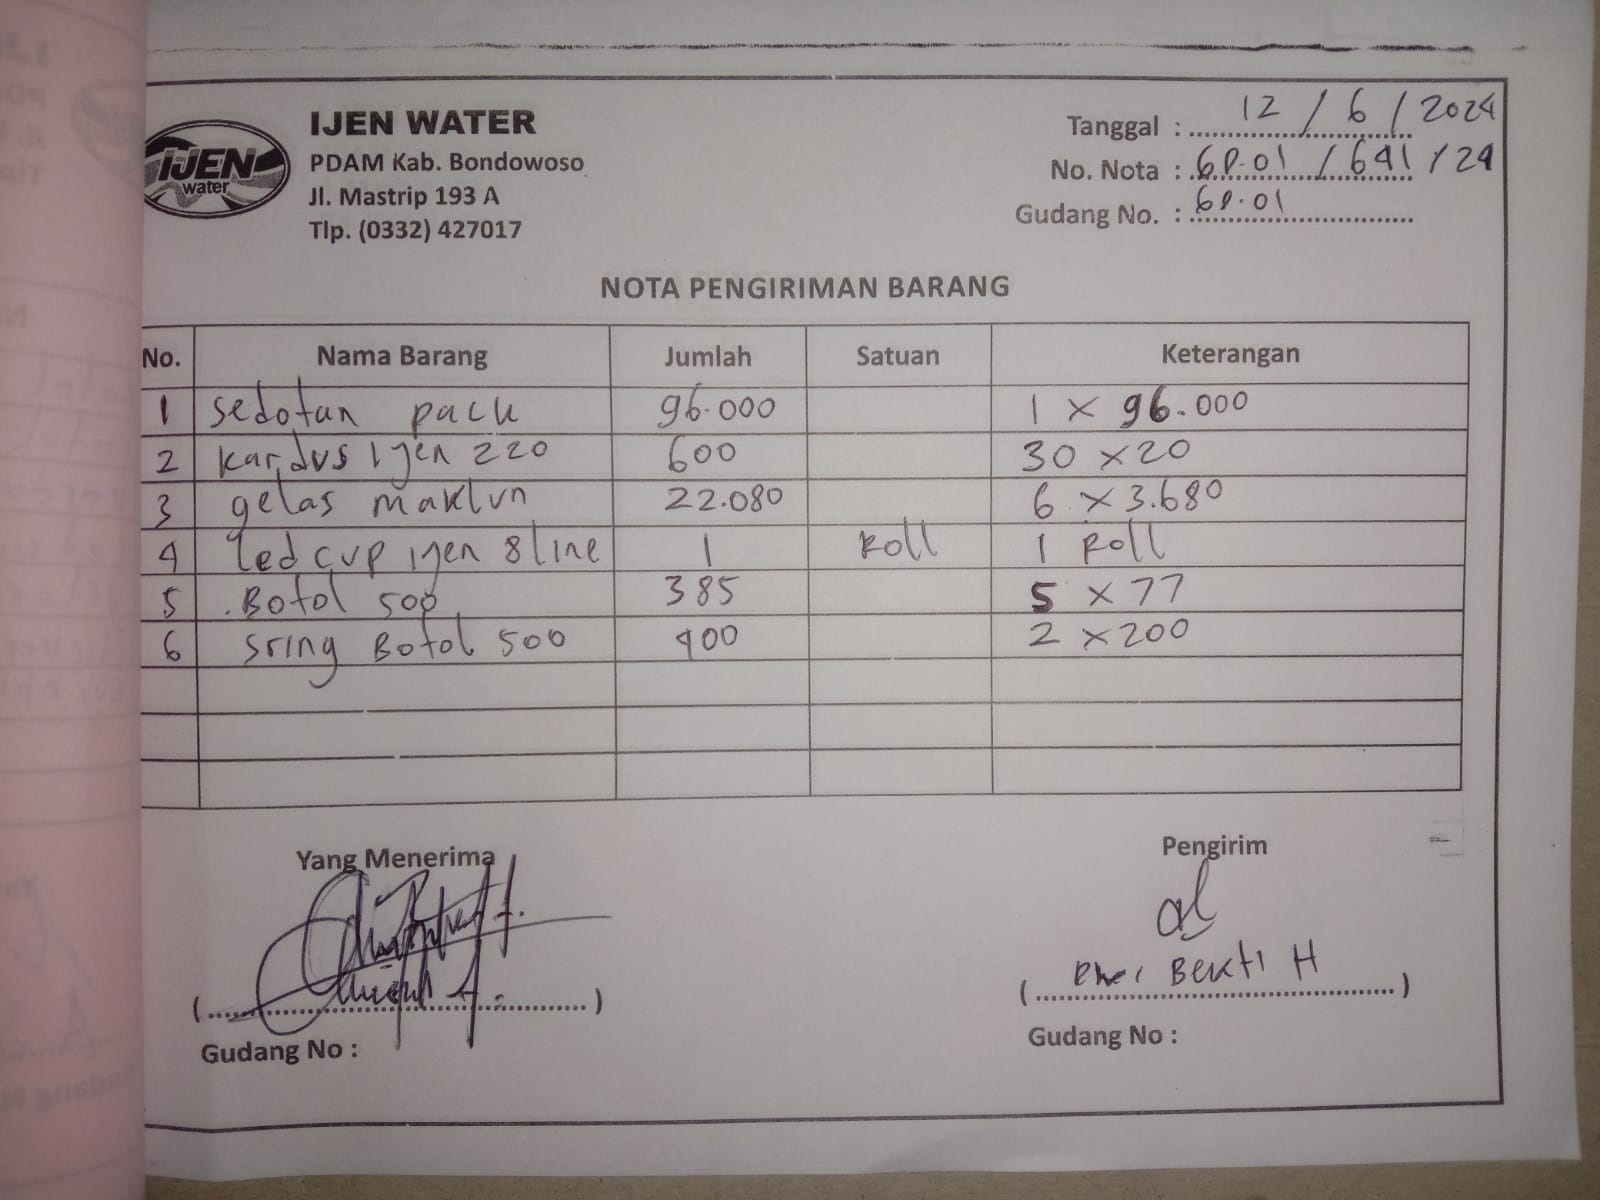 IJEN
water
IJEN WATER
PDAM Kab. Bondowoso
Jl. Mastrip 193 A
Tlp. (0332) 427017
Tanggal : 12 / 6 / 2024
No. Nota : GP.01 / 641 / 24
Gudang No. : GP.01
NOTA PENGIRIMAN BARANG
No. Nama Barang Jumlah Satuan Keterangan
1 sedotan pack 96.000 1 x 96.000
2 kardus ijen 220 600 30 x 20
3 gelas maklun 22.080 6 x 3.680
4 Led cup ijen 8 line 1 Roll 1 Roll
5 .Botol 500 385 5 x 77
6 sring Botol 500 400 2 x 200
Yang Menerima
Pengirim
( Bekti H )
Gudang No :
Gudang No :